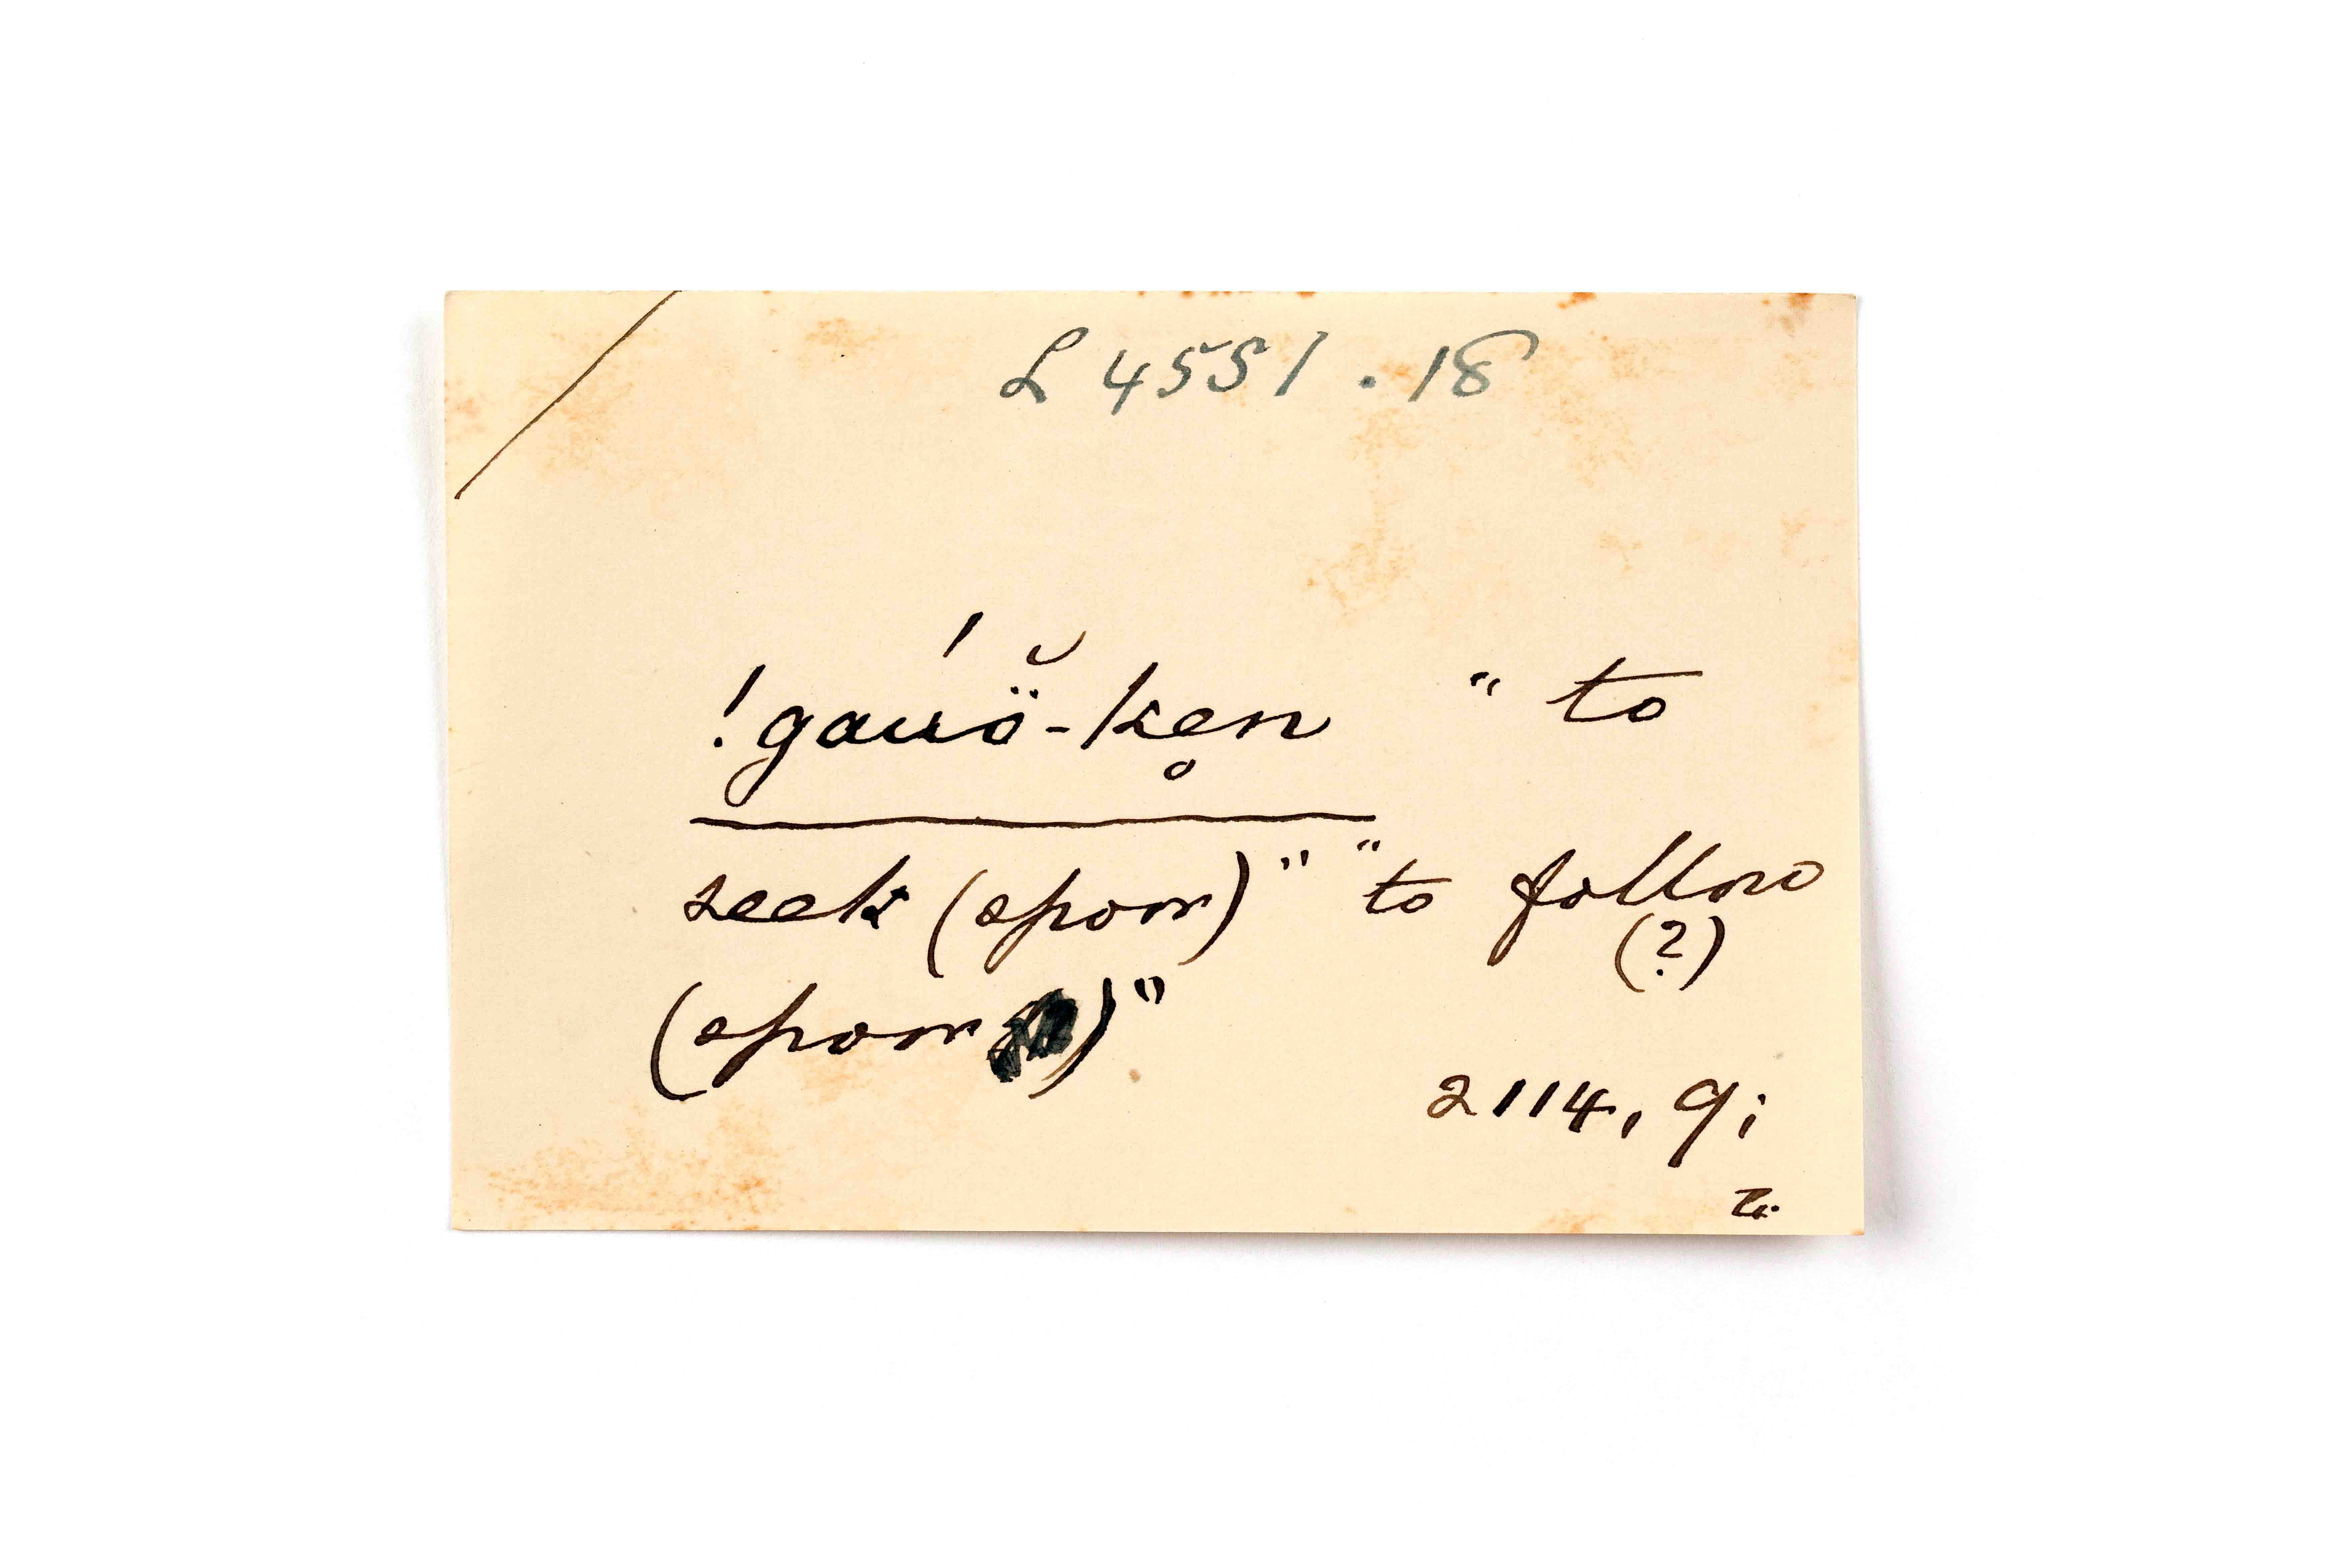 L 4551 . 18
!gáuö̆-ken̥ " to
seek (spoor)" "to follow
(?)
(spoor)"
2114, 9;